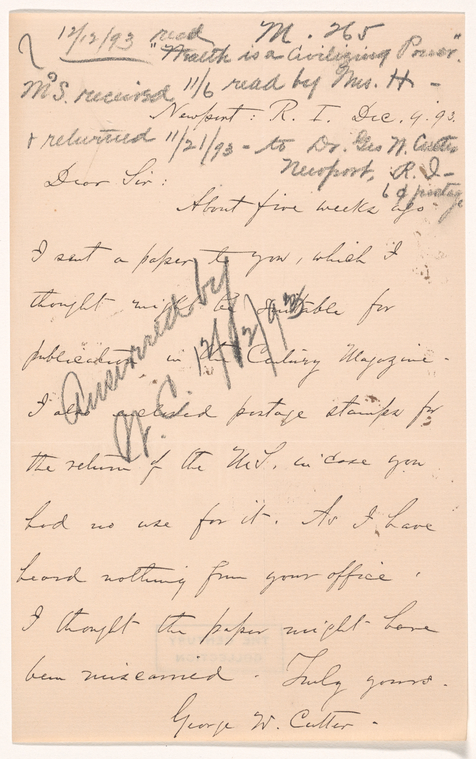 12/12/93 recd M. 265
"Wealth is a Civilizing Power".
MS. received 11/6 read by Mrs. H -
Newport: R. I. Dec. 9. 93.
& returned 11/21/93 - to Dr. Geo W. Cutter
Newport, R. I -
6¢ postage
Dear Sir:
About five weeks ago
I sent a paper to you, which I
thought might be suitable for
publication, in the Century Magazine -
I also enclosed postage stamps for
the return of the MS. in case you
had no use for it. As I have
heard nothing from your office,
I thought the paper might have
been miscarried. Truly yours.
George W. Cutter -
Answered by
12/12/93
COLLECTION